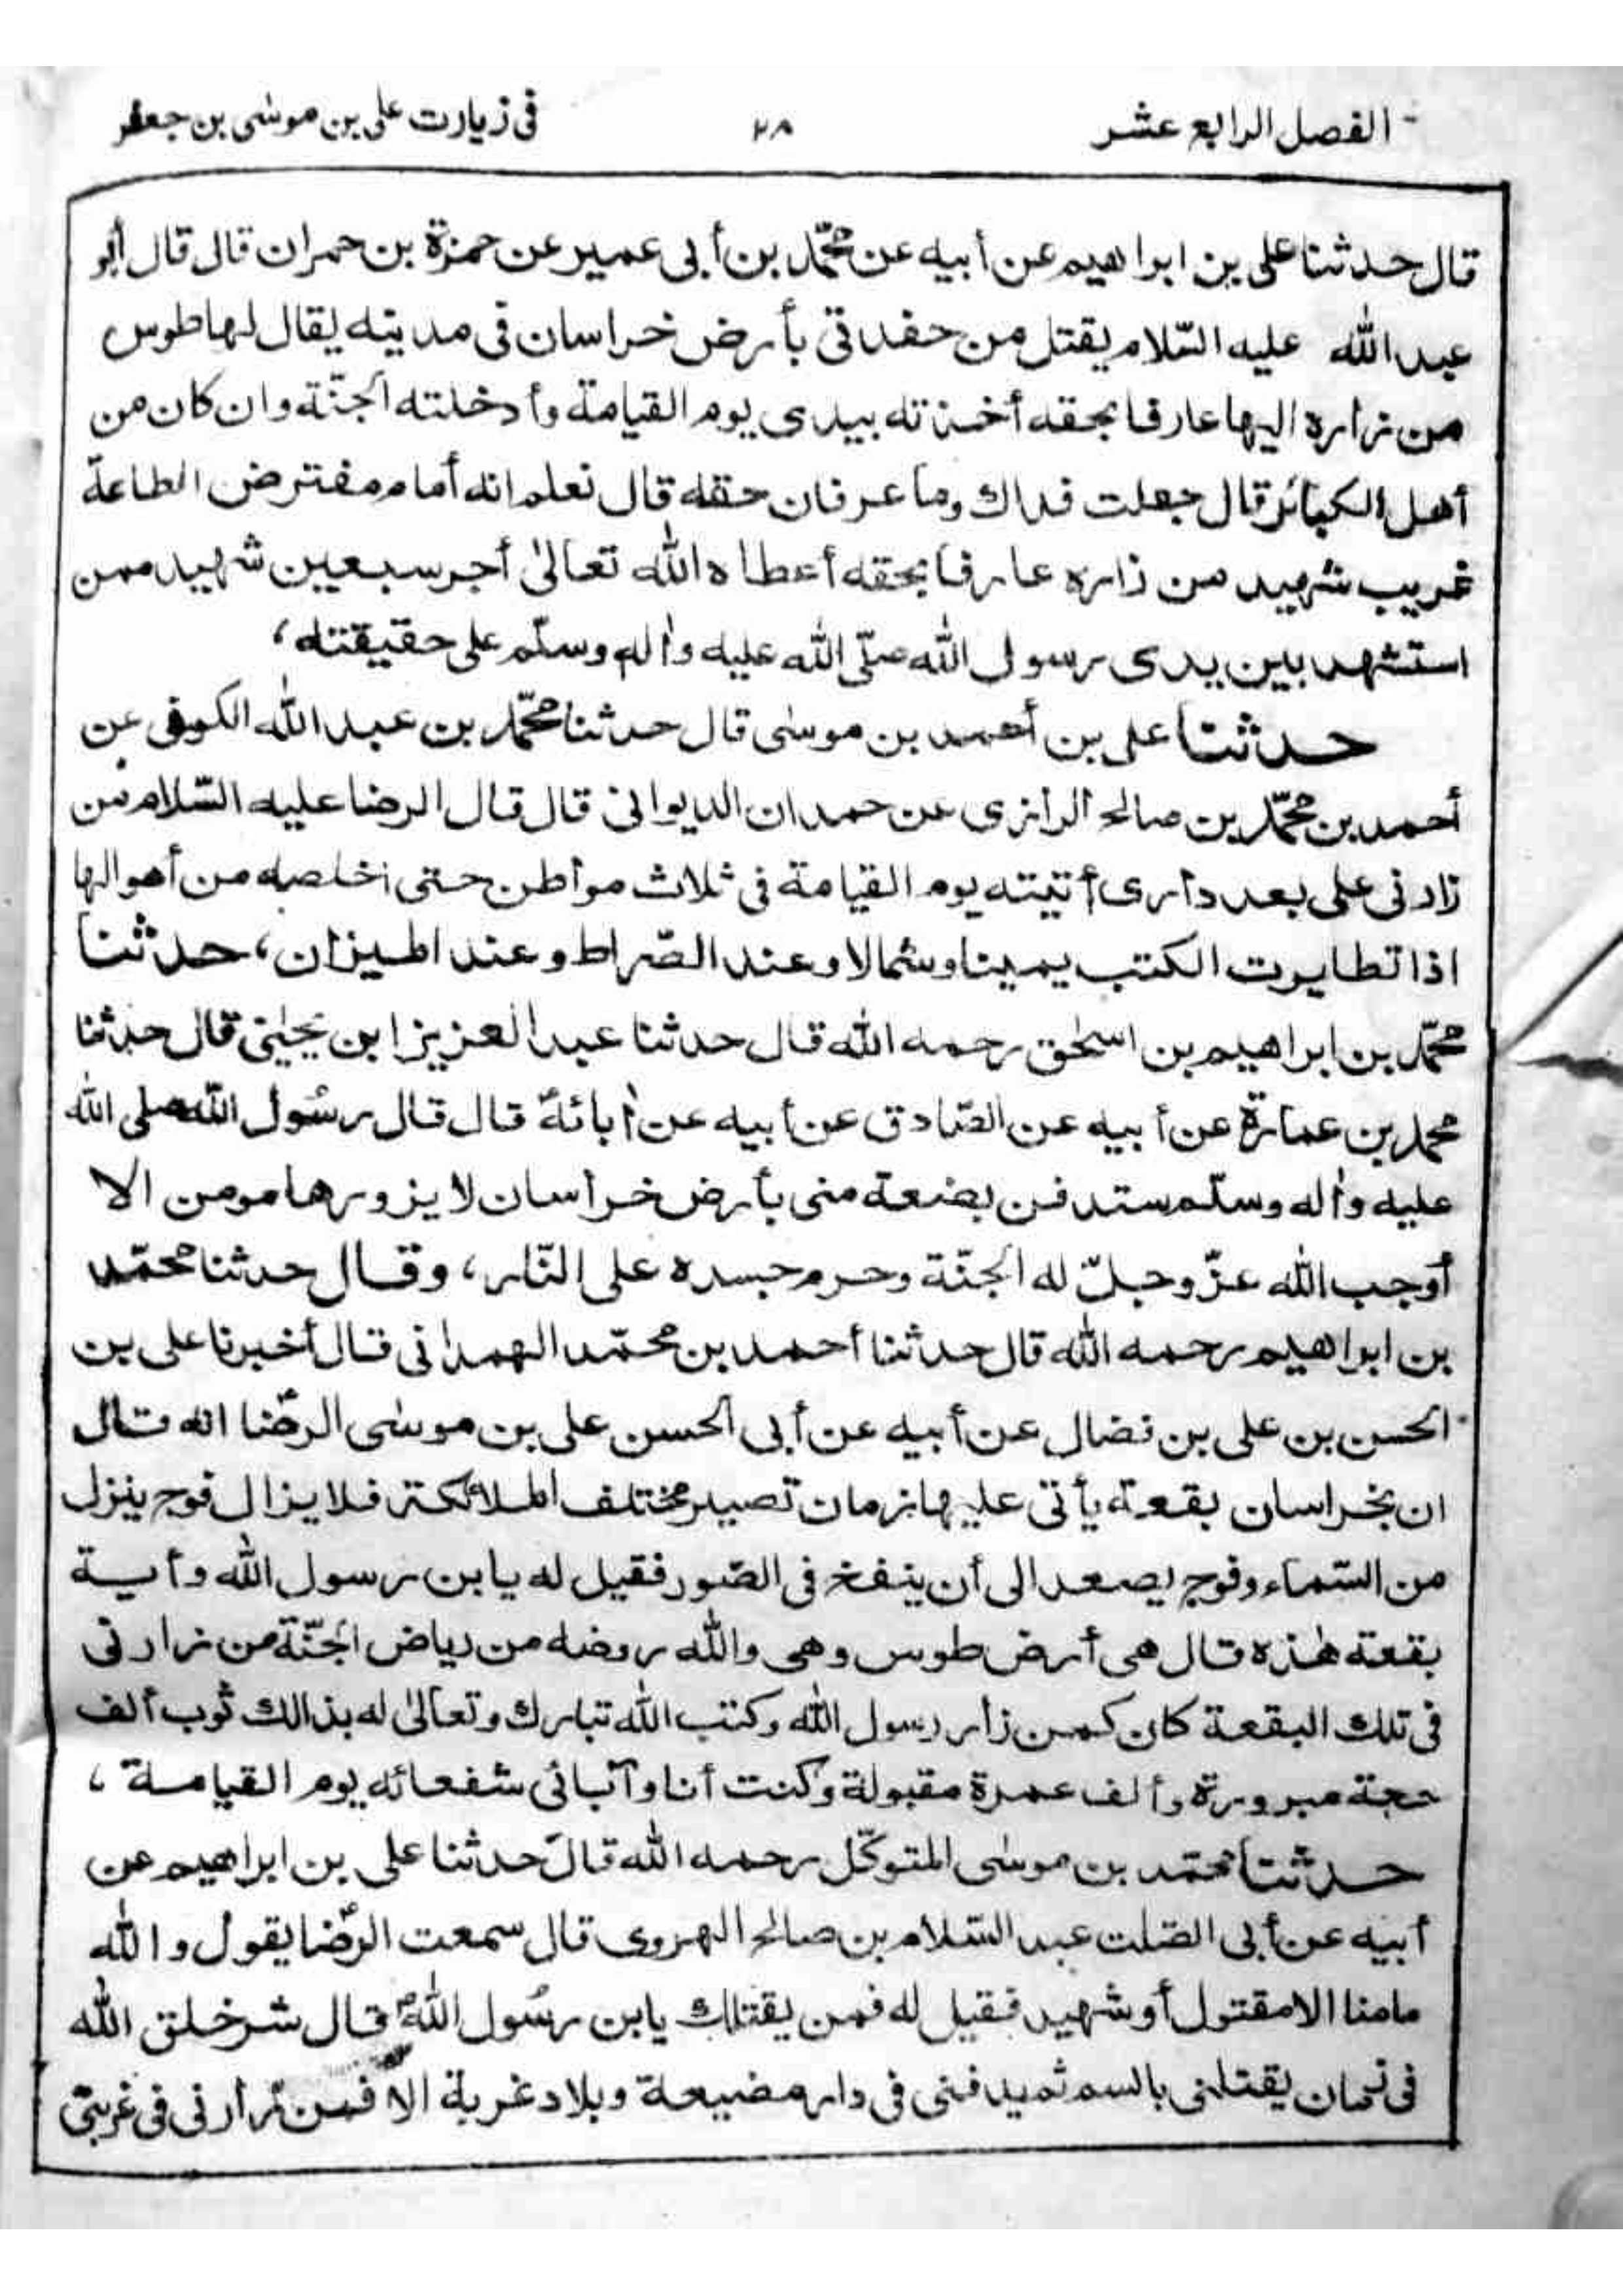 الفصل الرابع عشر ٢٨ فى زيارت على بن موسٰى بن جعفر
قال حدثنا على بن ابراهيم عن أبيه عن محمّد بن أبى عمير عن حمزة بن حمران قال قال أبو
عبد الله عليه السّلام يقتل من حفدتى بأرض خراسان فى مدينه يقال لها طوس
من زاره اليها عارفا بحقه أخذته بيدى يوم القيامة وأدخلته الجنّة وان كان من
أهل الكبائر قال جعلت فداك وما عرفان حقه قال نعلم انه أمام مفترض الطاعة
غريب شهيد من زاره عارفا بحقه أعطاه الله تعالىٰ أجر سبعين شهيد ممن
استشهد بين يدى رسول الله صلّى الله عليه واٰله وسلّم على حقيقته،
حدثنا على بن أحمد بن موسٰى قال حدثنا محمّد بن عبد الله الكوفى عن
أحمد بن محمّد بن صالح الرازى عن حمدان الديوانى قال قال الرضا عليه السّلام من
زارنى على بعد دارى أتيته يوم القيامة فى ثلاث مواطن حتى اخلصه من أهوالها
اذا تطايرت الكتب يمينا وشمالا وعند الصّراط وعند الميزان، حدثنا
محمّد بن ابراهيم بن اسحٰق رحمه الله قال حدثنا عبد العزيز ابن يحيٰى قال حدثنا
محمد بن عمارة عن أبيه عن الصّادق عن أبيه عن اٰبائهٖ قال قال رسُول الله صلى الله
عليه واٰله وسلّم ستدفن بضعة منى بأرض خراسان لا يزورها مومن الا
أوجب الله عزّ وجلّ له الجنّة وحرم جسده على النّار، وقال حدثنا محمّد
بن ابراهيم رحمه الله قال حدثنا أحمد بن محمّد الهمدانى قال أخبرنا على بن
الحسن بن على بن فضال عن أبيه عن أبى الحسن على بن موسٰى الرضّا انه قال
ان بخراسان بقعة يأتى عليها زمان تصير مختلف الملائكة فلا يزال فوج ينزل
من السّماء وفوج يصعد الى أن ينفخ فى الصّور فقيل له يا بن رسول الله وأية
بقعته هٰذه قال هى أرض طوس وهى والله روضه من رياض الجنّة من زارنى
فى تلك البقعة كان كمن زار رسول الله وكتب الله تبارك وتعالىٰ له بذالك ثوب ألف
حجة مبرورة وألف عمرة مقبولة وكنت أنا وآبائى شفعائه يوم القيامة،
حدثنا محمّد بن موسٰى المتوكّل رحمه الله قال حدثنا على بن ابراهيم عن
أبيه عن أبى الصّلت عبد السّلام بن صالح الهروى قال سمعت الرضّا يقول والله
مامنا الا مقتول أو شهيد فقيل له فمن يقتلك يابن رسُول الله قال شر خلق الله
فى زمان يقتلنى بالسم ثم يدفننى فى دار مضيعة وبلاد غربة الا فمن زارنى فى غربتى